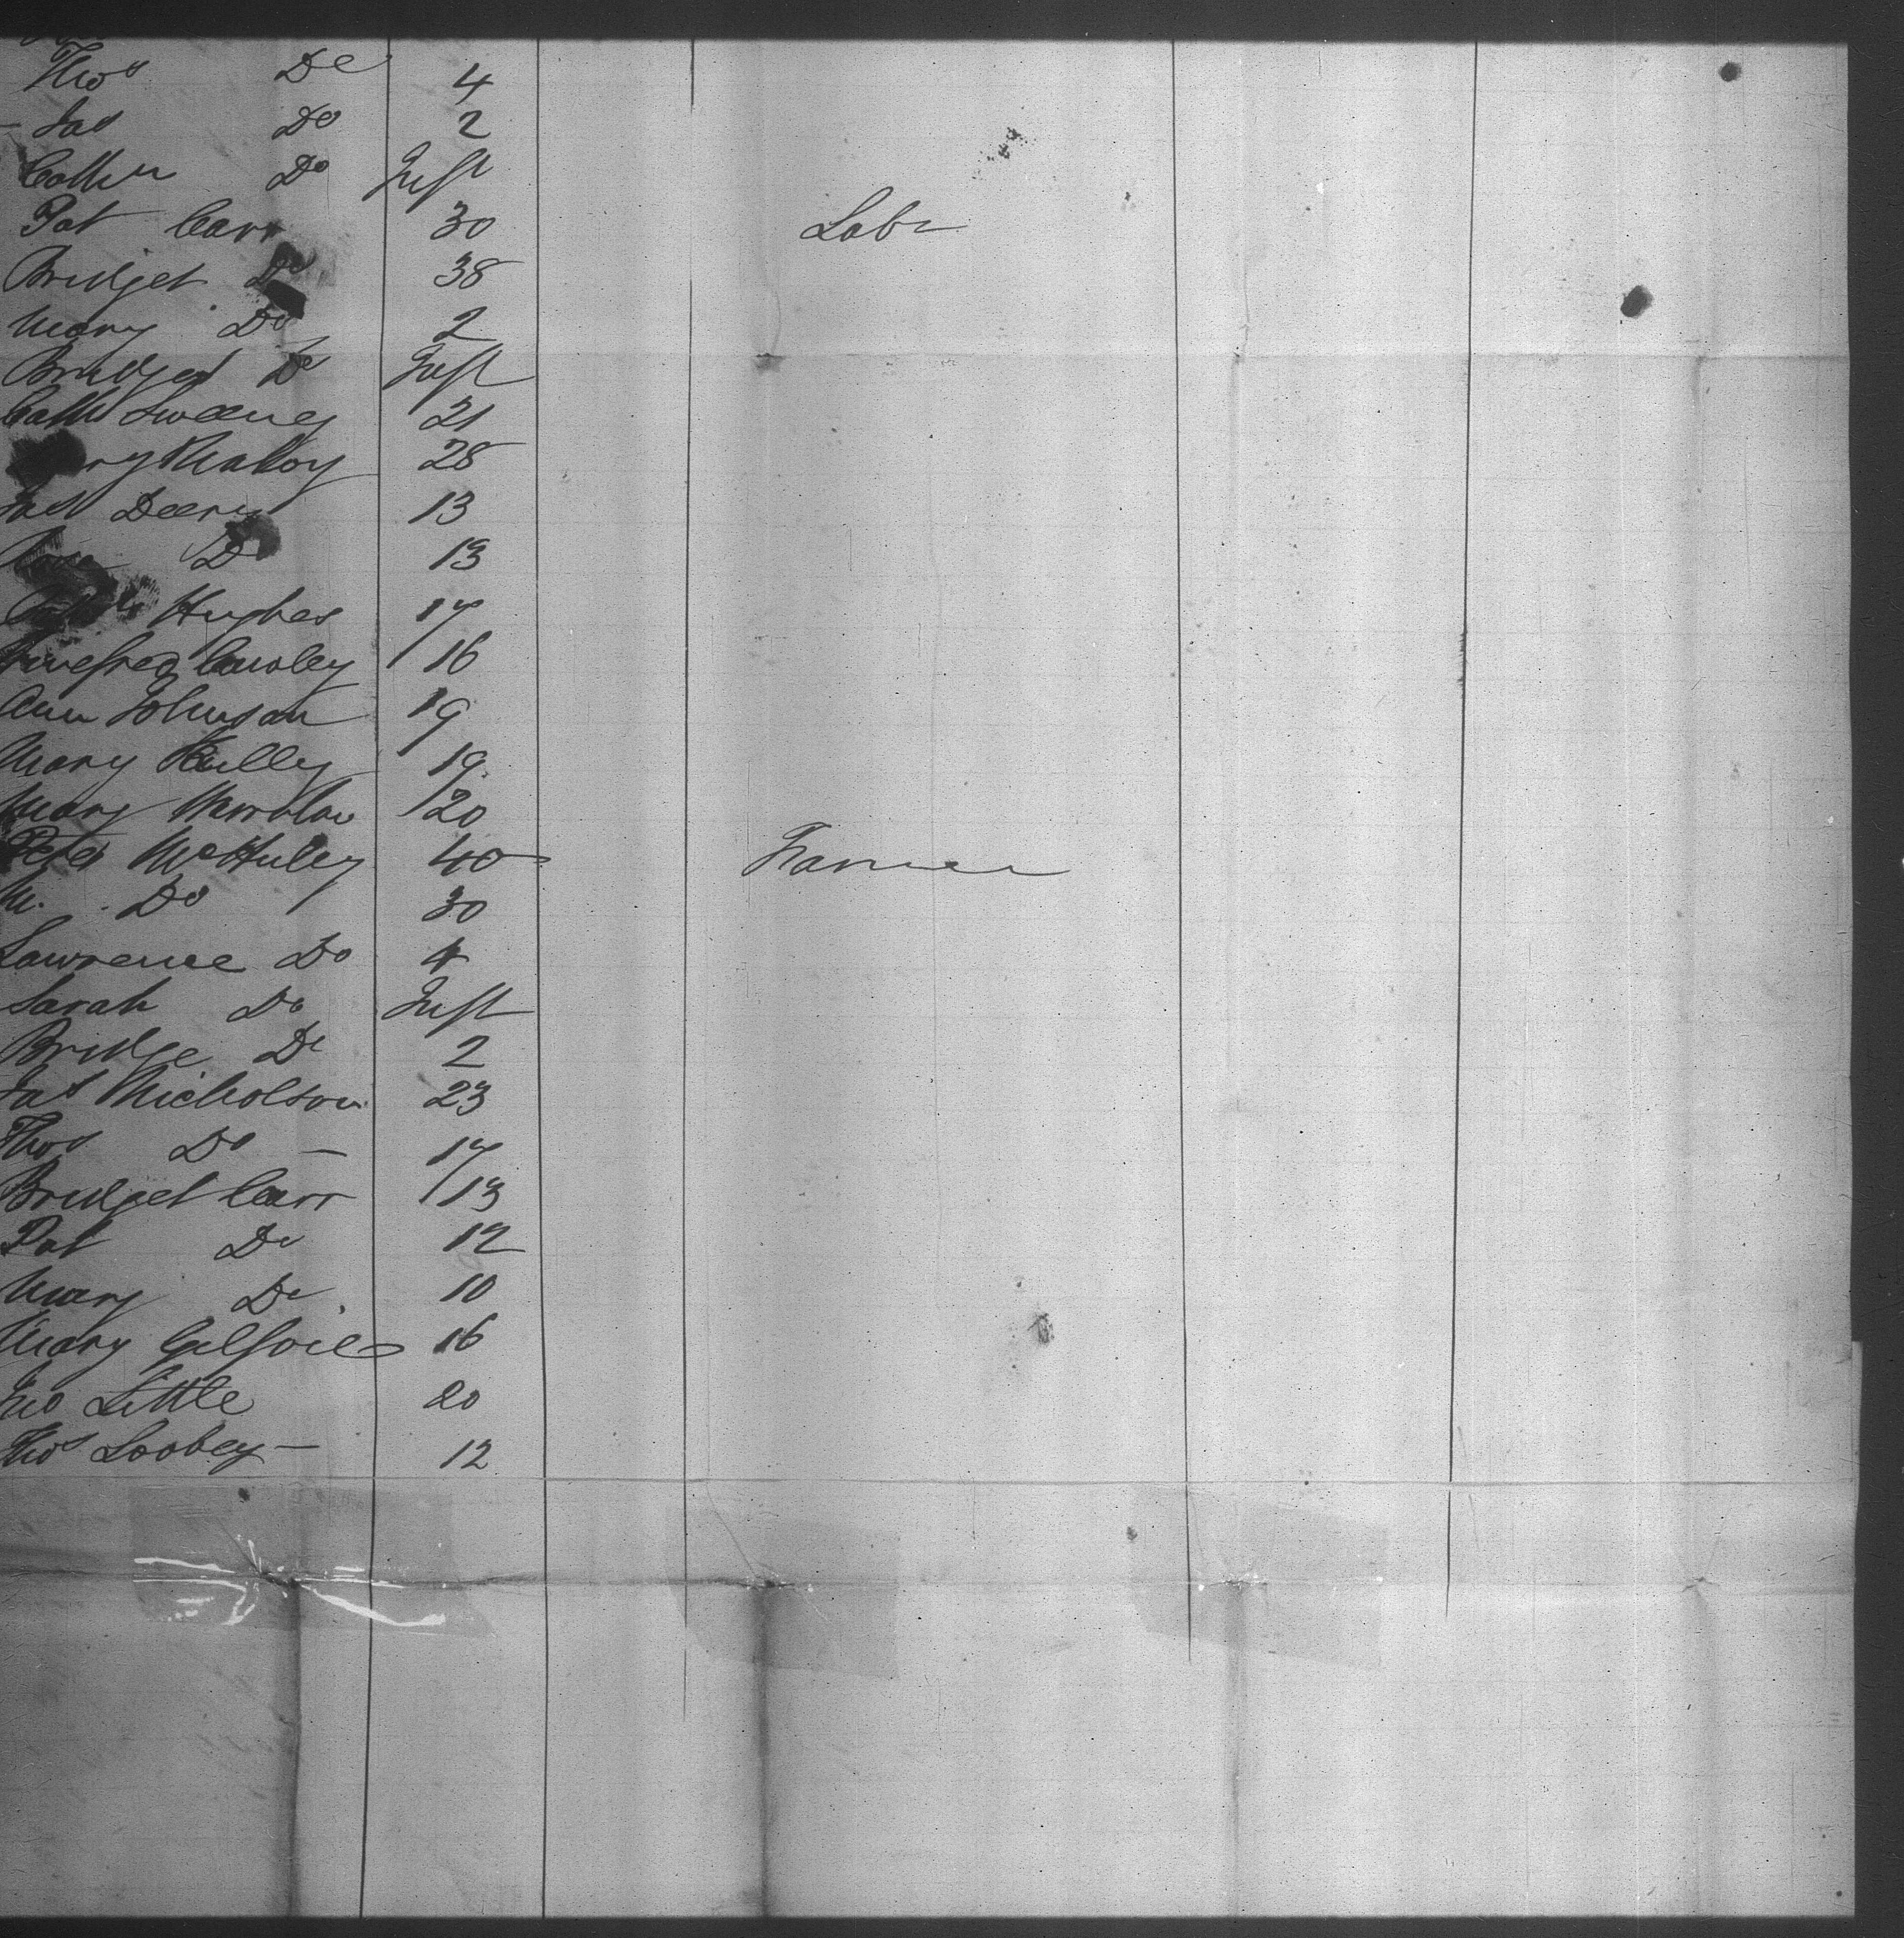 Thos Do 4
Jas Do 2
Cath Do Inft
Pat Carr 30 Labr
Bridget Do 38
Mary Do 2
Bridget Do Inft
Cath Sweeney 21
Malloy 28
Jas Deery 13
Do 13
Hughes 17
Cawley 16
Ann Johnson 19
Mary Kelly 19
Mary 20
Peter McHuley 40 Farmer
M. Do 30
Lawrence Do 4
Sarah Do Inft
Bridge Do 2
Jas Nicholson 23
Thos Do — 17
Bridget Carr 13
Pat Do 12
Mary Do 10
Mary 16
Jno Little 20
Thos Loobey — 12